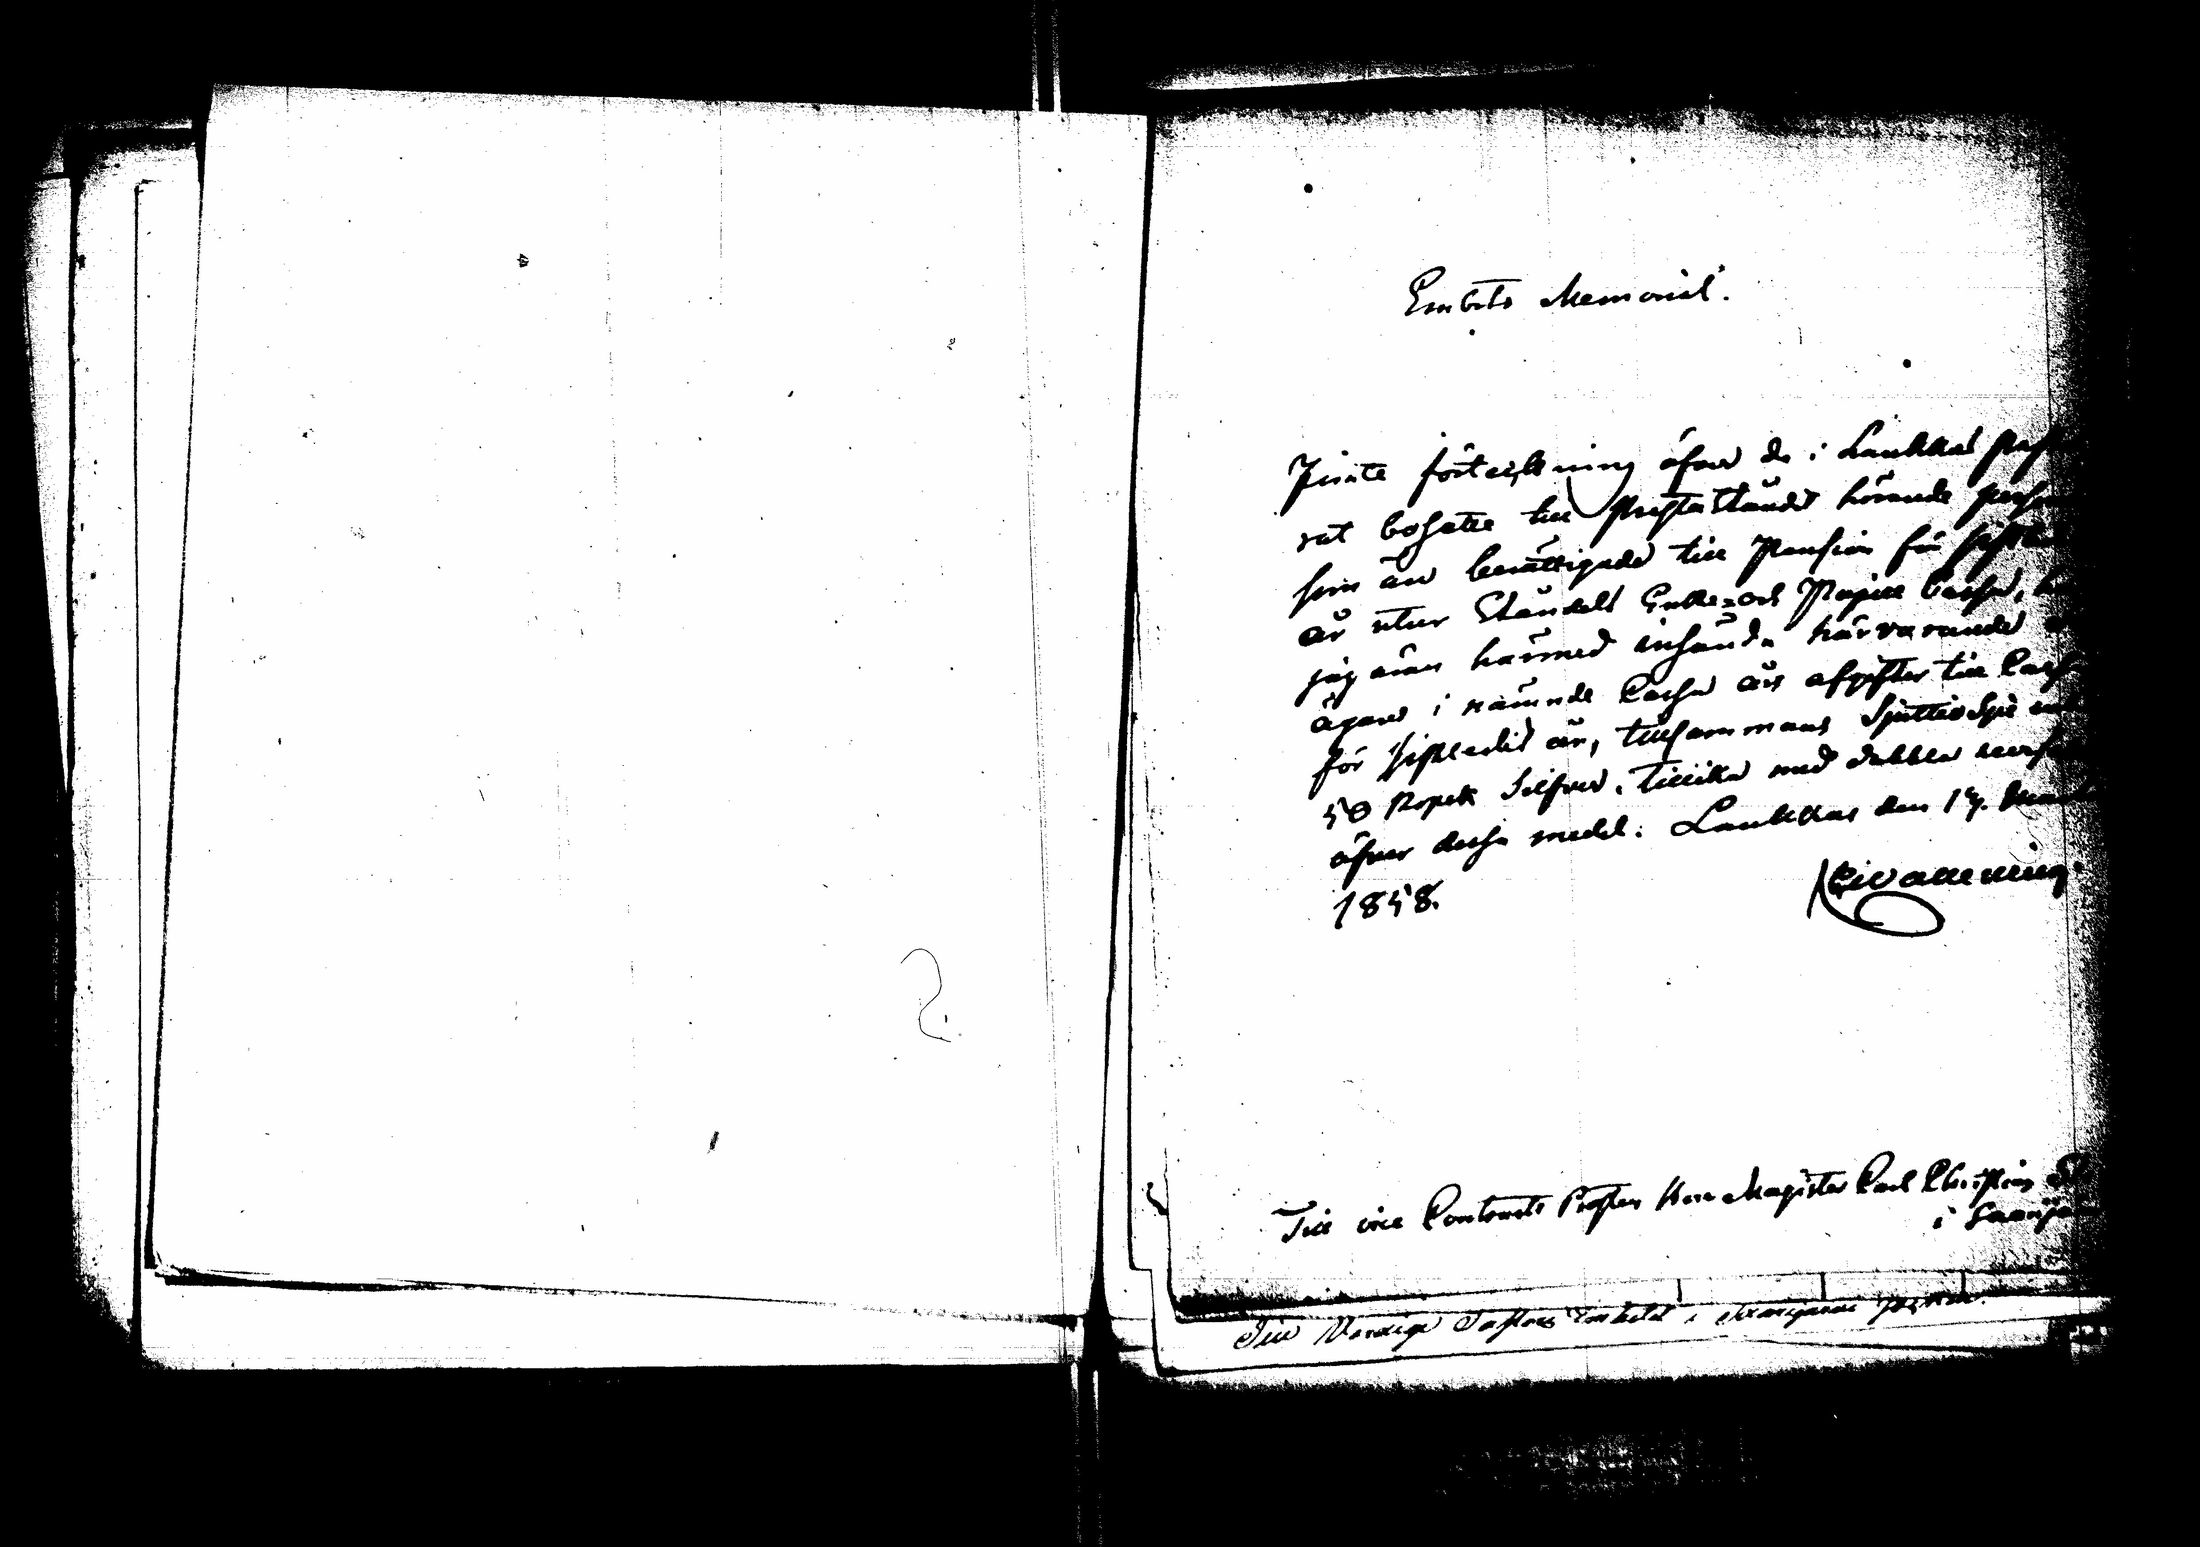 Embets Memorial.
Jemte förteckning öfver de i Laukkas pasto
rat bosatte till Presteståndet hörande perso
som äro berättigade till Pension för sistled
år utur Ståndets Enke- och Pupill Cassa,
jag äran härmed insända härvarande
ägares i nämnde Cassa års afgifter till Cass
för sistledit år, tillsammans Sjuttio Sju
50 Kopek Silfver, tillika med dubbla
öfver dessa medel. Laukkas den 17.
1858.
Till vice Contracts Prosten Herr Magister Carl Christian
i Saarijä
Till Vördige Pastors Embetet i